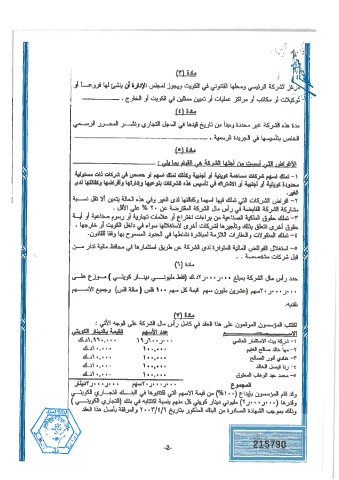 مادة (٣)
مركز الشركة الرئيسي ومحلها القانوني في الكويت ويجوز لمجلس الإدارة أن ينشئ لها فروعا أو
توكيلات أو مكاتب أو مراكز عمليات أو تعيين ممثلين في الكويت أو الخارج .
مادة (٤)
مدة هذه الشركة غير محددة وتبدأ من تاريخ قيدها في السجل التجاري ونشر المحرر الرسمي
الخاص بتأسيسها في الجريدة الرسمية .
مادة (٥)
الأغراض التي أسست من أجلها الشركة هي القيام بما يلي :
١- تملك أسهم شركات مساهمة كويتية أو أجنبية وكذلك تملك أسهم أو حصص في شركات ذات مسئولية
محدودة كويتية أو أجنبية أو الاشتراك في تأسيس هذه الشركات بنوعيها وإدارتها وإقراضها وكفالتها لدى
الغير.
٢- إقراض الشركات التي تملك فيها أسهما وكفالتها لدى الغير وفي هذه الحالة يتعين ألا تقل نسبة
مشاركة الشركة القابضة في رأس مال الشركة المقترضة عن ٢٠ % على الأقل .
٣- تملك حقوق الملكية الصناعية من براءات اختراع أو علامات تجارية أو رسوم صناعية أو أية
حقوق أخرى تتعلق بذلك وتأجيرها لشركات أخرى لاستغلالها سواء في داخل الكويت أو خارجها .
٤- تملك المنقولات والعقارات اللازمة لمباشرة نشاطها في الحدود المسموح بها وفقا للقانون.
٥- استغلال الفوائض المالية المتوافرة لدى الشركة عن طريق استثمارها في محافظ مالية تدار من
قبل شركات متخصصة .
مادة (٦)
حدد رأس مال الشركة بمبلغ ٢,٠٠٠,٠٠٠ د.ك (فقط مليوني دينار كويتي) موزع على
٢٠,٠٠٠,٠٠٠ سهم (عشرين مليون سهم قيمة كل سهم ١٠٠ فلس (مائة فلس) وجميع الأسهم
نقدية.
مادة (٧)
اكتتب المؤسسون الموقعون على هذا العقد في كامل رأس مال الشركة على الوجه الآتي :
الاسم عدد الأسهم القيمة بالدينار الكويتي
المجموع ٢٠,٠٠٠,٠٠٠ سهم ٢,٠٠٠,٠٠٠ دينار
وقد قام المؤسسون بإيداع (١٠٠%) من قيمة الأسهم التي اكتتبوا فيها في البنك التجاري الكويتي
وذلك بموجب الشهادة الصادرة من البنك المذكور بتاريخ ٢٠٠٣/٤/٩ والمرفقة بأصل هذا العقد
-2-
215790